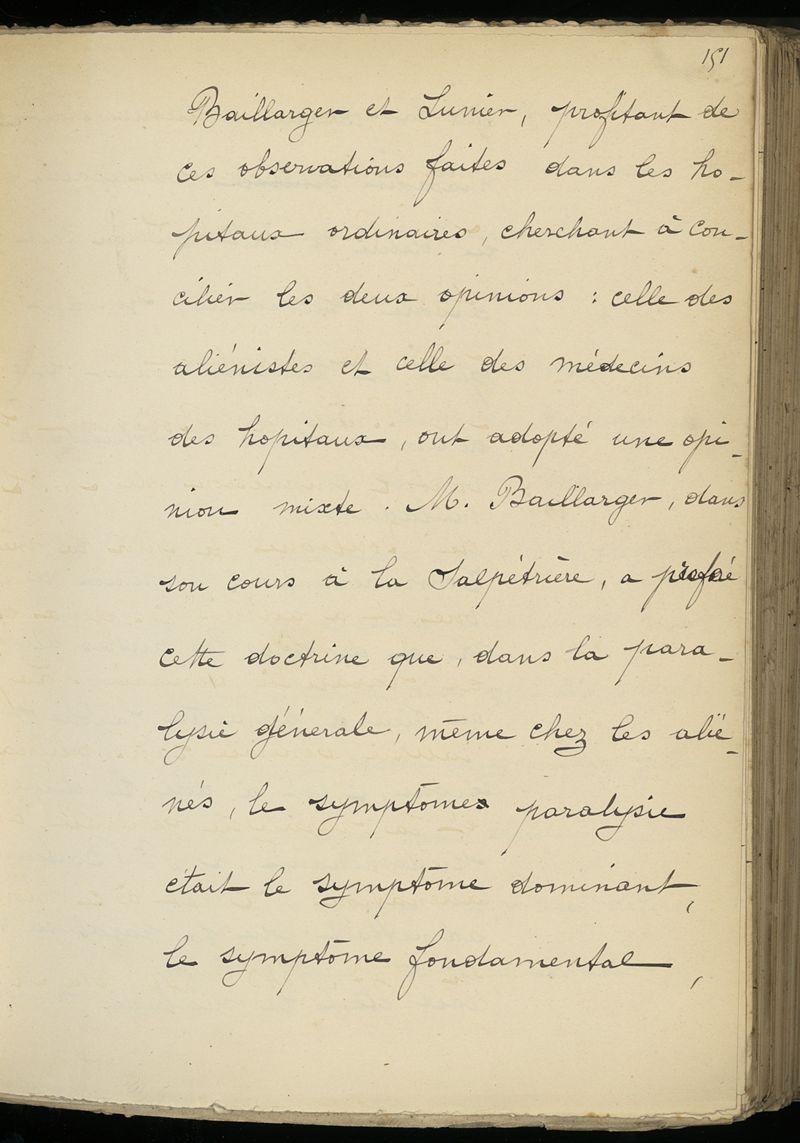 151
Baillarger et Lunier, profitant de
ces observations faites dans les ho-
pitaux ordinaires, cherchant à con-
cilier les deux opinions : celle des
aliénistes et celle des médecins
des hopitaux, ont adopté une opi-
nion mixte. M. Baillarger, dans
son cours à la Salpétrière, a
cette doctrine que, dans la para-
lysie générale, même chez les alié-
nés, le symptômes paralysie
était le symptôme dominant,
le symptôme fondamental,